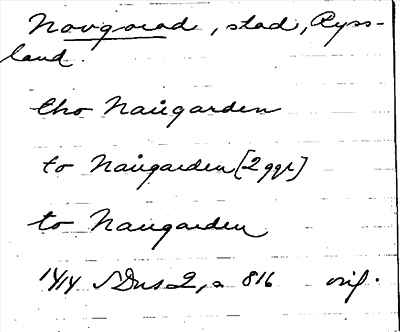 Novgorod, stad, Ryss-
land.
tho Naŭgarden
to Naŭgarden [2 ggr]
to Naugarden
1414 SDns 2, a 816 orig.